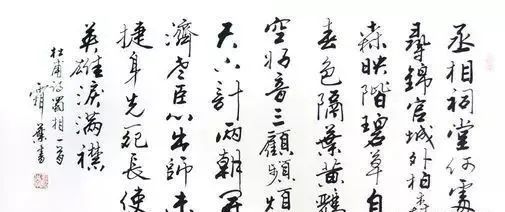 丞相祠堂何處
尋錦官城外柏森
森映階碧草自
春色隔葉黃鸝
空好音三顧頻煩
天下計兩朝開
濟老臣心出師未
捷身先死長使
英雄淚滿襟
杜甫詩蜀相一首
書